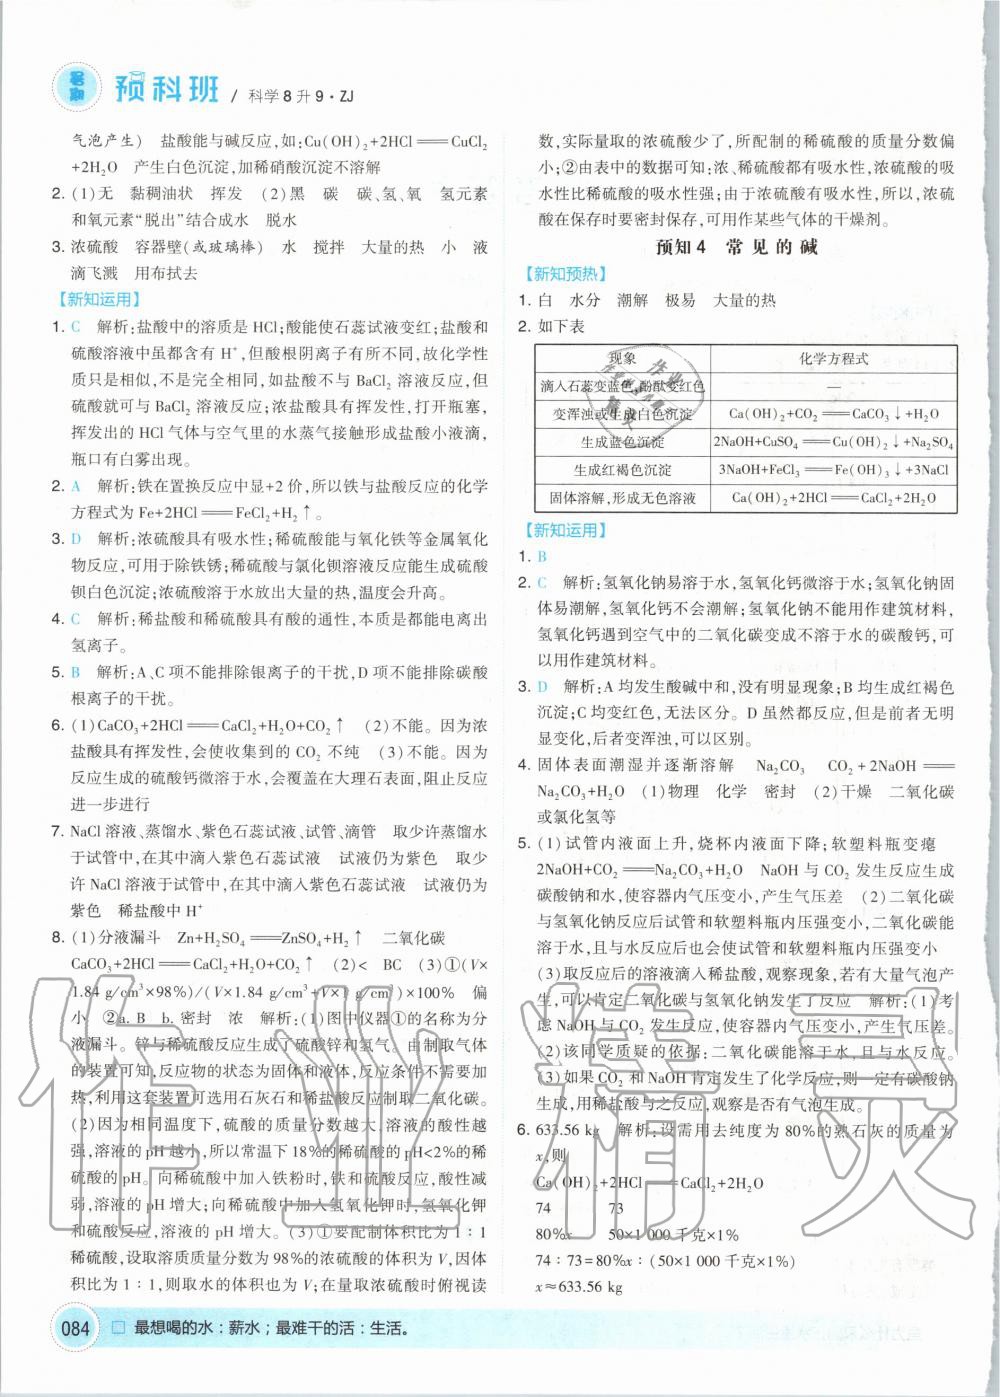 暑期 预科班 / 科学8升9·ZJ
气泡产生) 盐酸能与碱反应,如:Cu(OH)₂+2HCl══CuCl₂
+2H₂O 产生白色沉淀,加稀硝酸沉淀不溶解
2. (1)无 黏稠油状 挥发 (2)黑 碳 碳、氢、氧 氢元素
和氧元素“脱出”结合成水 脱水
3. 浓硫酸 容器壁(或玻璃棒) 水 搅拌 大量的热 小 液
滴飞溅 用布拭去
【新知运用】
1. C 解析:盐酸中的溶质是 HCl;酸能使石蕊试液变红;盐酸和
硫酸溶液中虽都含有 H⁺,但酸根阴离子有所不同,故化学性
质只是相似,不是完全相同,如盐酸不与 BaCl₂ 溶液反应,但
硫酸就可与 BaCl₂ 溶液反应;浓盐酸具有挥发性,打开瓶塞,
挥发出的 HCl 气体与空气里的水蒸气接触形成盐酸小液滴,
瓶口有白雾出现。
2. A 解析:铁在置换反应中显+2 价,所以铁与盐酸反应的化学
方程式为 Fe+2HCl══FeCl₂+H₂↑。
3. D 解析:浓硫酸具有吸水性;稀硫酸能与氧化铁等金属氧化
物反应,可用于除铁锈;稀硫酸与氯化钡溶液反应能生成硫酸
钡白色沉淀;浓硫酸溶于水放出大量的热,温度会升高。
4. C 解析:稀盐酸和稀硫酸具有酸的通性,本质是都能电离出
氢离子。
5. B 解析:A、C 项不能排除银离子的干扰,D 项不能排除碳酸
根离子的干扰。
6. (1)CaCO₃+2HCl══CaCl₂+H₂O+CO₂↑ (2)不能。因为浓
盐酸具有挥发性,会使收集到的 CO₂ 不纯 (3)不能。因为
反应生成的硫酸钙微溶于水,会覆盖在大理石表面,阻止反应
进一步进行
7. NaCl 溶液、蒸馏水、紫色石蕊试液、试管、滴管 取少许蒸馏水
于试管中,在其中滴入紫色石蕊试液 试液仍为紫色 取少
许 NaCl 溶液于试管中,在其中滴入紫色石蕊试液 试液仍为
紫色 稀盐酸中 H⁺
8. (1)分液漏斗 Zn+H₂SO₄══ZnSO₄+H₂↑ 二氧化碳
CaCO₃+2HCl══CaCl₂+H₂O+CO₂↑ (2)< BC (3)①(V×
1.84 g/cm³×98%)/(V×1.84 g/cm³+V×1 g/cm³)×100% 偏
小 ②a. B b. 密封 浓 解析:(1)图中仪器①的名称为分
液漏斗。锌与稀硫酸反应生成了硫酸锌和氢气。由制取气体
的装置可知,反应物的状态为固体和液体,反应条件不需要加
热,利用这套装置可选用石灰石和稀盐酸反应制取二氧化碳。
(2)因为相同温度下,硫酸的质量分数越大,溶液的酸性越
强,溶液的 pH 越小,所以常温下 18%的稀硫酸的 pH<2%的稀
硫酸的 pH。向稀硫酸中加入铁粉时,铁和硫酸反应,酸性减
弱,溶液的 pH 增大;向稀硫酸中加入氢氧化钾时,氢氧化钾
和硫酸反应,溶液的 pH 增大。(3)①要配制体积比为 1∶1
稀硫酸,设取溶质质量分数为 98%的浓硫酸的体积为 V,因体
积比为 1∶1,则取水的体积也为 V;在量取浓硫酸时俯视读
数,实际量取的浓硫酸少了,所配制的稀硫酸的质量分数偏
小;②由表中的数据可知:浓、稀硫酸都有吸水性,浓硫酸的吸
水性比稀硫酸的吸水性强;由于浓硫酸有吸水性,所以,浓硫
酸在保存时要密封保存,可用作某些气体的干燥剂。
预知4 常见的碱
【新知预热】
1. 白 水分 潮解 极易 大量的热
2. 如下表
现象 化学方程式
滴入石蕊变蓝色,酚酞变红色 —
变浑浊或生成白色沉淀 Ca(OH)₂+CO₂══CaCO₃↓+H₂O
生成蓝色沉淀 2NaOH+CuSO₄══Cu(OH)₂↓+Na₂SO₄
生成红褐色沉淀 3NaOH+FeCl₃══Fe(OH)₃↓+3NaCl
固体溶解,形成无色溶液 Ca(OH)₂+2HCl══CaCl₂+2H₂O
【新知运用】
1. B
2. C 解析:氢氧化钠易溶于水,氢氧化钙微溶于水;氢氧化钠固
体易潮解,氢氧化钙不会潮解;氢氧化钠不能用作建筑材料,
氢氧化钙遇到空气中的二氧化碳变成不溶于水的碳酸钙,可
以用作建筑材料。
3. D 解析:A 均发生酸碱中和,没有明显现象;B 均生成红褐色
沉淀;C 均变红色,无法区分。D 虽然都反应,但是前者无明
显变化,后者变浑浊,可以区别。
4. 固体表面潮湿并逐渐溶解 Na₂CO₃ CO₂+2NaOH══
Na₂CO₃+H₂O (1)物理 化学 密封 (2)干燥 二氧化碳
或氯化氢等
5. (1)试管内液面上升,烧杯内液面下降;软塑料瓶变瘪
2NaOH+CO₂══Na₂CO₃+H₂O NaOH 与 CO₂ 发生反应生成
碳酸钠和水,使容器内气压变小,产生气压差 (2)二氧化碳
与氢氧化钠反应后试管和软塑料瓶内压强变小,二氧化碳能
溶于水,且与水反应后也会使试管和软塑料瓶内压强变小
(3)取反应后的溶液滴入稀盐酸,观察现象,若有大量气泡产
生,可以肯定二氧化碳与氢氧化钠发生了反应 解析:(1)考
虑 NaOH 与 CO₂ 发生反应,使容器内气压变小,产生气压差。
(2)该同学质疑的依据:二氧化碳能溶于水,且与水反应。
(3)如果 CO₂ 和 NaOH 肯定发生了化学反应,则一定有碳酸钠
生成,用稀盐酸与之反应,观察是否有气泡生成。
6. 633.56 kg 解析:设需用去纯度为 80%的熟石灰的质量为
x,则
Ca(OH)₂+2HCl══CaCl₂+2H₂O
74 73
80%x 50×1 000 千克×1%
74∶73=80%x∶(50×1 000 千克×1%)
x≈633.56 kg
084 □ 最想喝的水:薪水;最难干的活:生活。
作业精灵